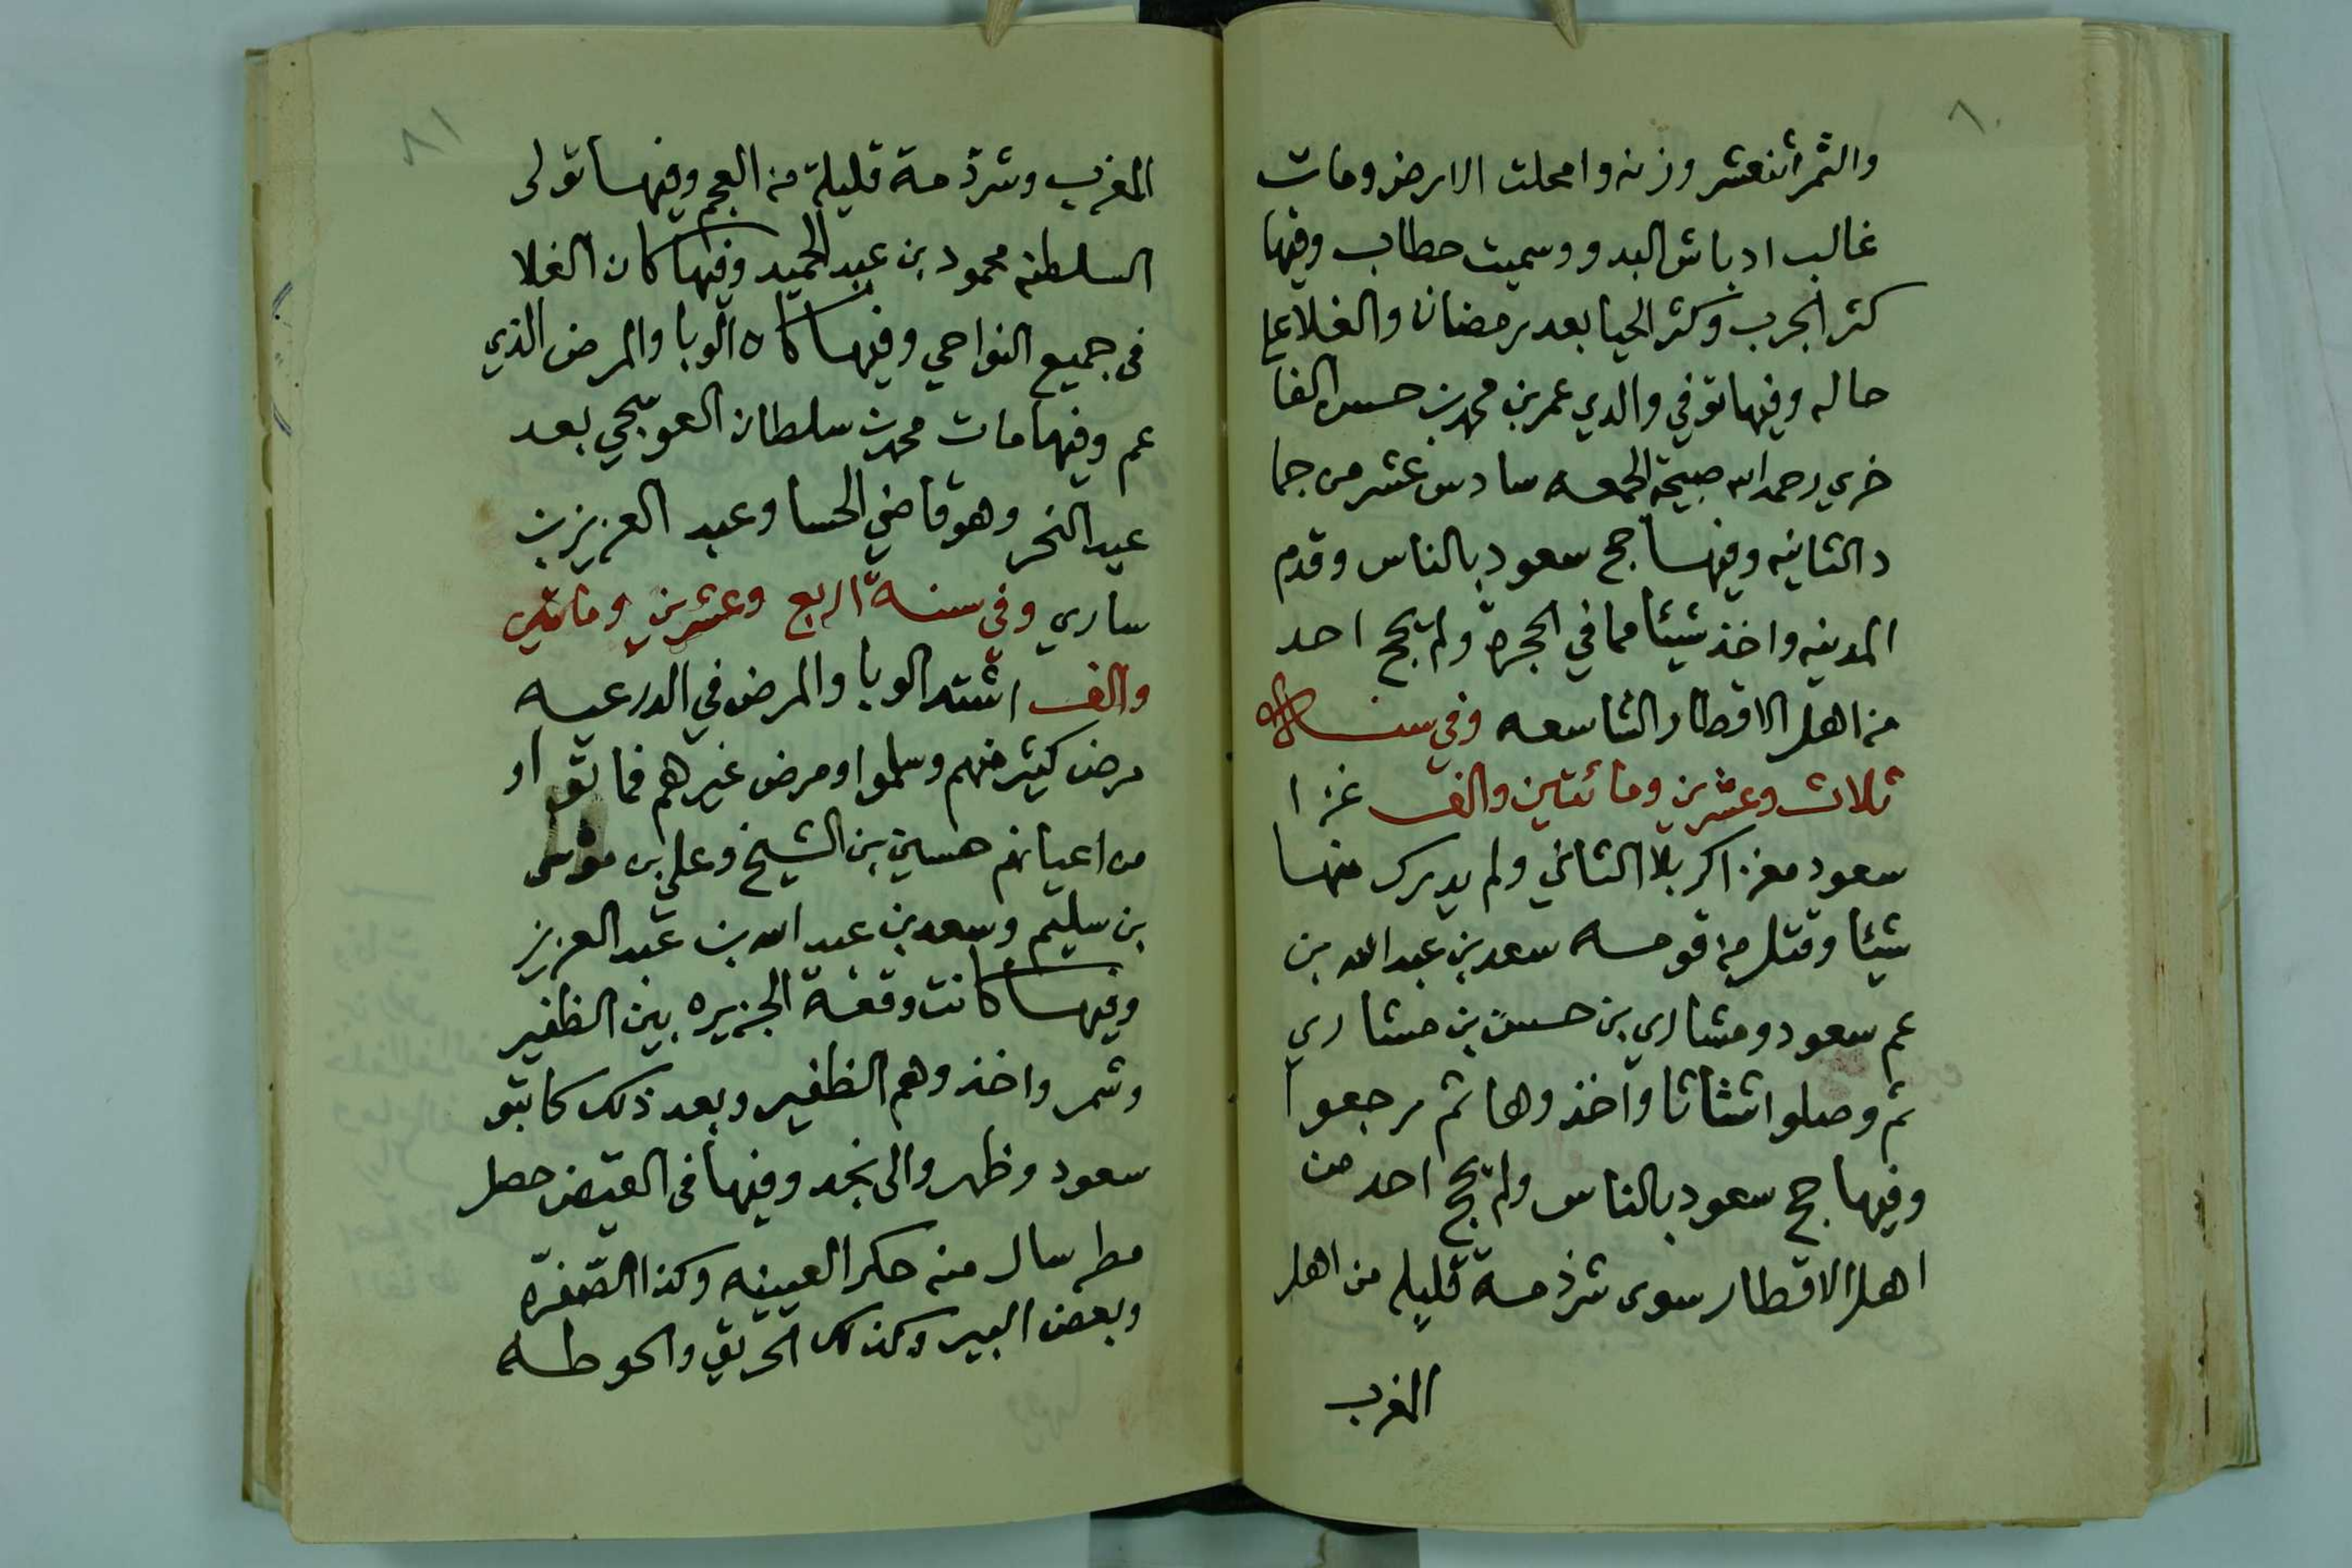 ٨٠
والثمر اثنعشر وزنه وامحلت الارض ومات
غالب ادباش البدو وسميت حطاب وفيها
كثر الجرب وكثر الحيا بعد رمضان والغلا على
حاله وفيها توفي والدي عمر بن محمد بن حسن الفا
خري رحمه الله صبيحة الجمعه سادس عشر من جما
د الثانيه وفيها حج سعود بالناس وقدم
المدينه واخذ شيئا مما في الحجرة ولم يحج احد
من اهل الاقطار الشاسعه وفي سنة
ثلاث وعشرين ومائتين والف غزا
سعود مغزا كربلا الثاني ولم يدرك منها
شيئا وقتل من قومه سعد بن عبدالله بن
عم سعود ومشاري بن حسن بن مشاري
ثم وصلوا شثاثا واخذوها ثم رجعوا
وفيها حج سعود بالناس ولم يحج احد من
اهل الاقطار سوى شرذمة قليله من اهل
المغرب
٨١
المغرب وشرذمة قليلة من العجم وفيها تولى
السلطنه محمود بن عبد الحميد وفيها كان الغلا
في جميع النواحي وفيها كان الوبا والمرض الذي
عم وفيها مات محمد بن سلطان العوسجي بعد
عيد النحر وهو قاضي الحسا وعبد العزيز بن
ساري وفي سنة اربع وعشرين ومائتين
والف اشتد الوبا والمرض في الدرعيه
مرض كثير منهم وسلموا ومرض غيرهم فماتوا و
من اعيانهم حسين بن الشيخ وعلي بن موسى
بن سليم وسعد بن عبد الله بن عبد العزيز
وفيها كانت وقعة الجزيره بين الظفير
وشمر واخذوهم الظفير وبعد ذلك كاتبو
سعود وظهروا الى نجد وفيها في القيض حصل
مطر سال منه حكر العيينه وكذا الصفره
وبعض البير وكذلك الحريق والحوطه